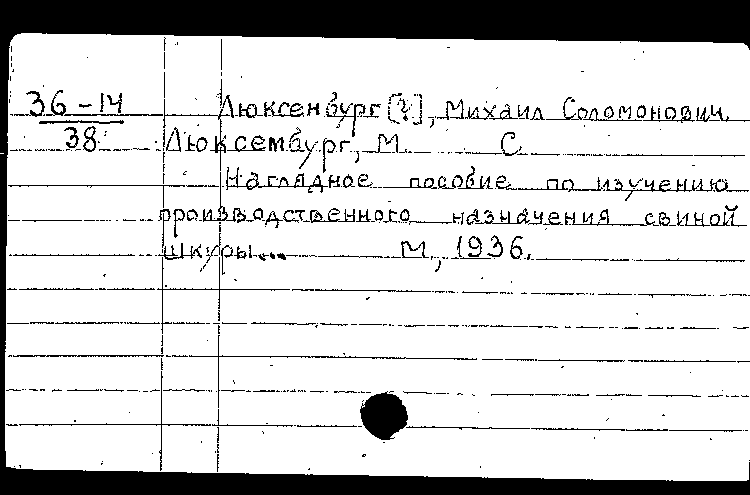 36-14
38
Люксенбург [?], Михаил Соломонович.
Люксембург, М. С.
Наглядное пособие по изучению
производственного назначения свиной
шкуры... М., 1936.